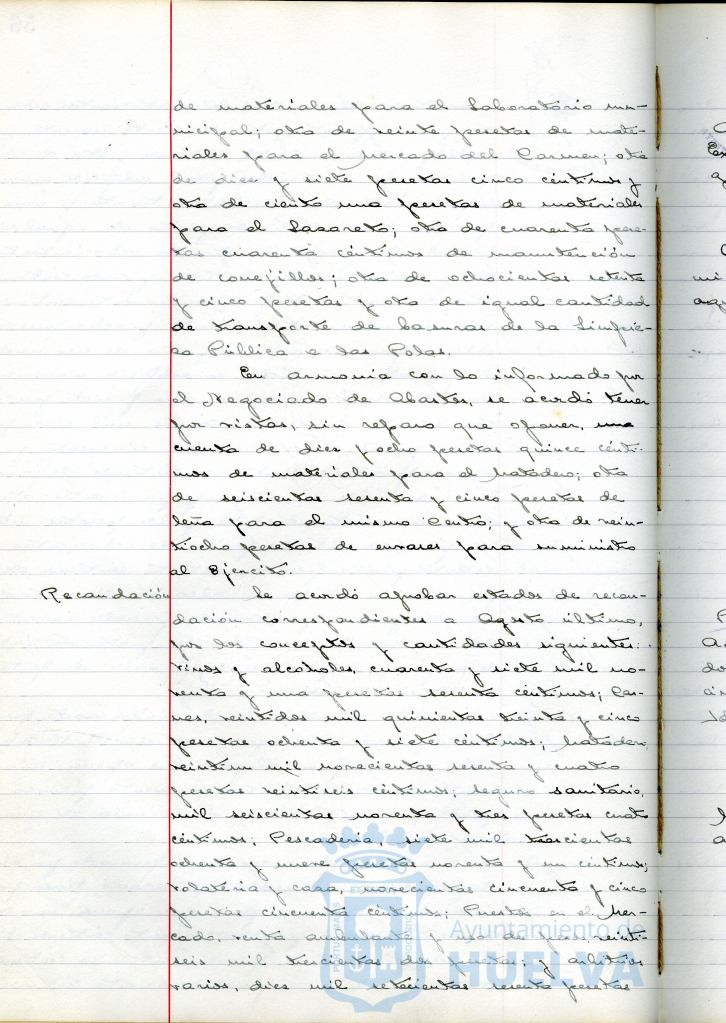 de materiales para el Laboratorio mu-
nicipal; otra de veinte pesetas de mate-
riales para el Mercado del Carmen; otra
de diez y siete pesetas cinco céntimos y
otra de ciento una pesetas de materiales
para el Lazareto; otra de cuarenta pese-
tas cuarenta céntimos de manutención
de conejillos; otra de ochocientas setenta
y cinco pesetas y otra de igual cantidad
de transporte de basuras de la Limpie-
za Pública a las Polas.
En armonía con lo informado por
el Negociado de Abastos, se acordó tener
por vistas, sin reparo que oponer, una
cuenta de diez y ocho pesetas quince cénti-
mos de materiales para el Matadero; otra
de seiscientas sesenta y cinco pesetas de
leña para el mismo Centro; y otra de vein-
tiocho pesetas de envases para suministro
al Ejército.
Recaudación
Se acordó aprobar estados de recau-
dación correspondientes a Agosto último,
por los conceptos y cantidades siguientes:
vinos y alcoholes, cuarenta y siete mil no-
venta y una pesetas sesenta céntimos; Car-
nes, veintidos mil quinientas treinta y cinco
pesetas ochenta y siete céntimos; Matadero,
veintiun mil novecientas sesenta y cuatro
pesetas veintiseis céntimos; seguro sanitario,
mil seiscientas noventa y tres pesetas cuatro
céntimos; Pescadería, siete mil trescientas
ochenta y nueve pesetas noventa y un céntimos;
volatería y caza, novecientas cincuenta y cinco
pesetas cincuenta céntimos; Puestos en el Mer-
cado, venta ambulante y veinti-
seis mil trescientas dos pesetas; y arbitrios
varios, diez mil setecientas sesenta pesetas
Ayuntamiento de
HUELVA